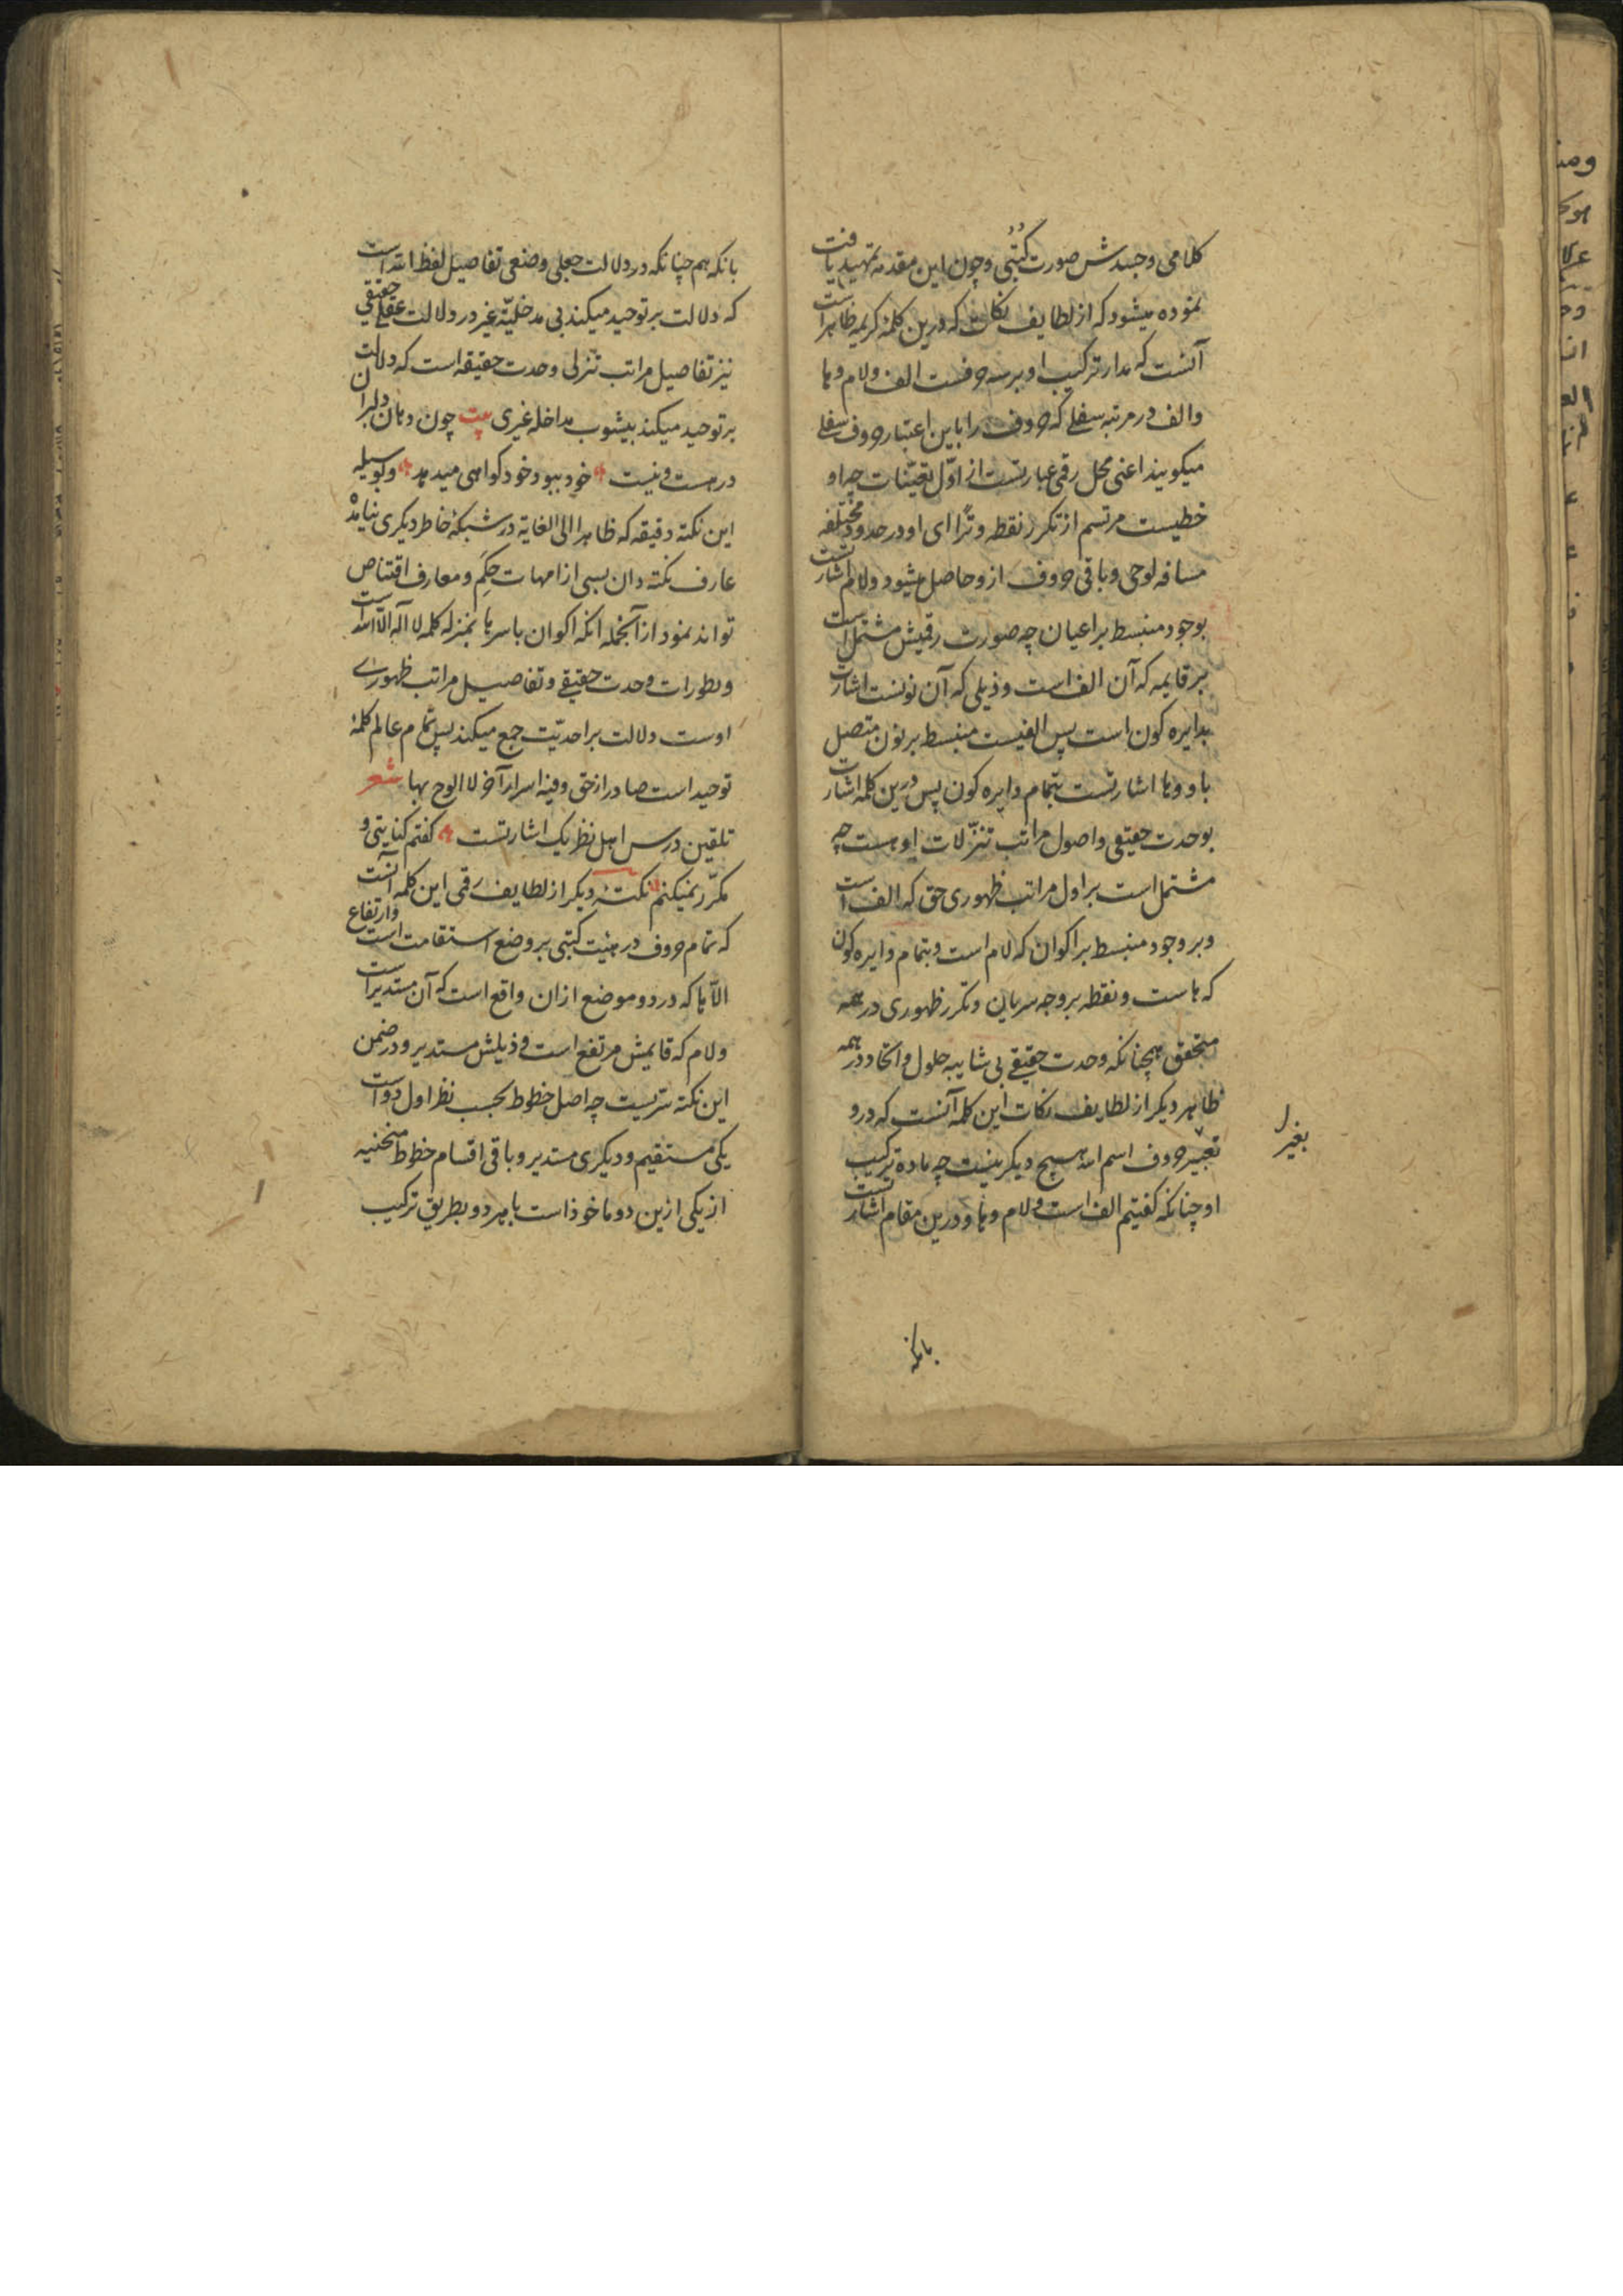 کلامی و جسدش صورت کُتُبی و چون این مقدمه تمهید یافت
نموده میشود که از لطایف نکات که درین کلمهٔ کریمه ظاهر است
آنست که مدار ترکیب او بر سه حرفست الف و لام و ها
والف در مرتبه سفلی که حروف را باین اعتبار حروف سفلی
میکویند اعنی محل رقمی عبارتست از اوّل تعیّنات چه او
خطیست مرتسم از تکرر نقطه و تراای او در حدود مختلفه
مسافه لوحی و باقی حروف ازو حاصل میشود و لام اشارتست
بوجود منبسط بر اعیان چه صورت رقمیش مشتمل است
بر قایمه که آن الف است و ذیلی که آن نونست اشارت
بدایره کون است پس الفیست منبسط بر نون متصل
باو و ها اشارتست بتمام دایره کون پس درین کلمه اشارت
بوحدت حقیقی و اصول مراتب تنزّلات او هست چه
مشتمل است بر اول مراتب ظهوری حق که الف است
و بر وجود منبسط بر اکوان که لام است و بتمام دایره کون
که هاست و نقطه بر وجه سریان و تکرر ظهوری در همه
متحقق همچنانکه وحدت حقیقی بی شایبه حلول و اتحاد در همه
ظاهر دیکر از لطایف نکات این کلمه آنست که درو
بغیر حروف اسم الله هیچ دیکر نیست چه ماده ترکیب
بغیر
او چنانکه کفتیم الف است و لام و ها و درین مقام اشارتست
بانکه
بانکه هم چنانکه در دلالت جعلی وضعی تفاصیل لفظ الله است
که دلالت بر توحید میکند بی مدخلیّه غیر در دلالت عقلی حقیقی
نیز تفاصیل مراتب تنزلی وحدت حقیقه است که دلالت
بر توحید میکند بیشوب مداخله غیری بیت چون دهان دلبران
در هست و نیست خود ببود خود کواهی میدهد و بوسیله
این نکته دقیقه که ظاهرا الی الغایة در شبکهٔ خاطر دیکری نیامده
عارف نکته دان بسی از امهات حِکَم و معارف اقتناص
تواند نمود از آنجمله انکه اکوان باسرها بمنزله کلمه لا اله الا الله است
و تطورات وحدت حقیقی و تفاصیل مراتب ظهوراے
اوست دلالت بر احدیّت جمع میکند پس تمام عالم کلمهٔ
توحید است صادر از حق وفیه اسرار آخر لا الوح بها شعر
تلقین درس اهل نظر یک اشارتست کفتم کنایتی و
مکرّر نمیکنم نکتهٔ دیکر از لطایف رقمی این کلمه آنست
که تمام حروف در هیئت کتبی بر وضع استقامت است وارتفاع
الّا ها که در دو موضع ازان واقع است که آن مستدیر است
و لام که قایمش مرتفع است و ذیلش مستدیر و در ضمن
این نکته سرّیست چه اصل خطوط بحسب نظر اول دو است
یکی مستقیم و دیکری مستدیر و باقی اقسام خطوط منحنیه
از یکی ازین دو ماخوذ است یا بهر دو بطریق ترکیب